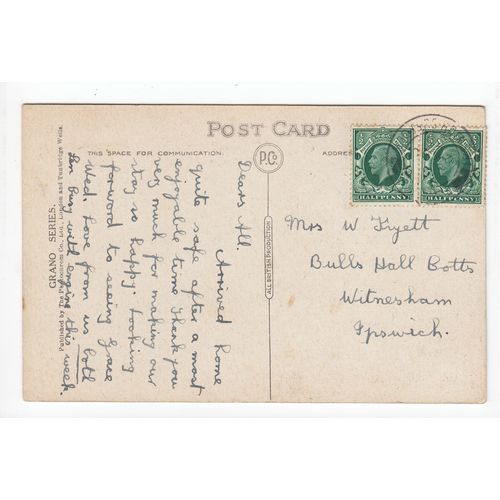 POST CARD
THIS SPACE FOR COMMUNICATION.
P.Co.
ADDRES
HALFPENNY
HALFPENNY
GRANO SERIES.
Published by The Photochrom Co., Ltd., London and Tunbridge Wells.
ALL BRITISH PRODUCTION
Dears All.
Arrived home
quite safe after a most
enjoyable time Thank you
very much for making our
stay so happy. Looking
forward to seeing Grace
Wed. Love from us both
Im busy with this week.
Mrs W Fryett
Bulls Hall Cotts
Witnesham
Ipswich.